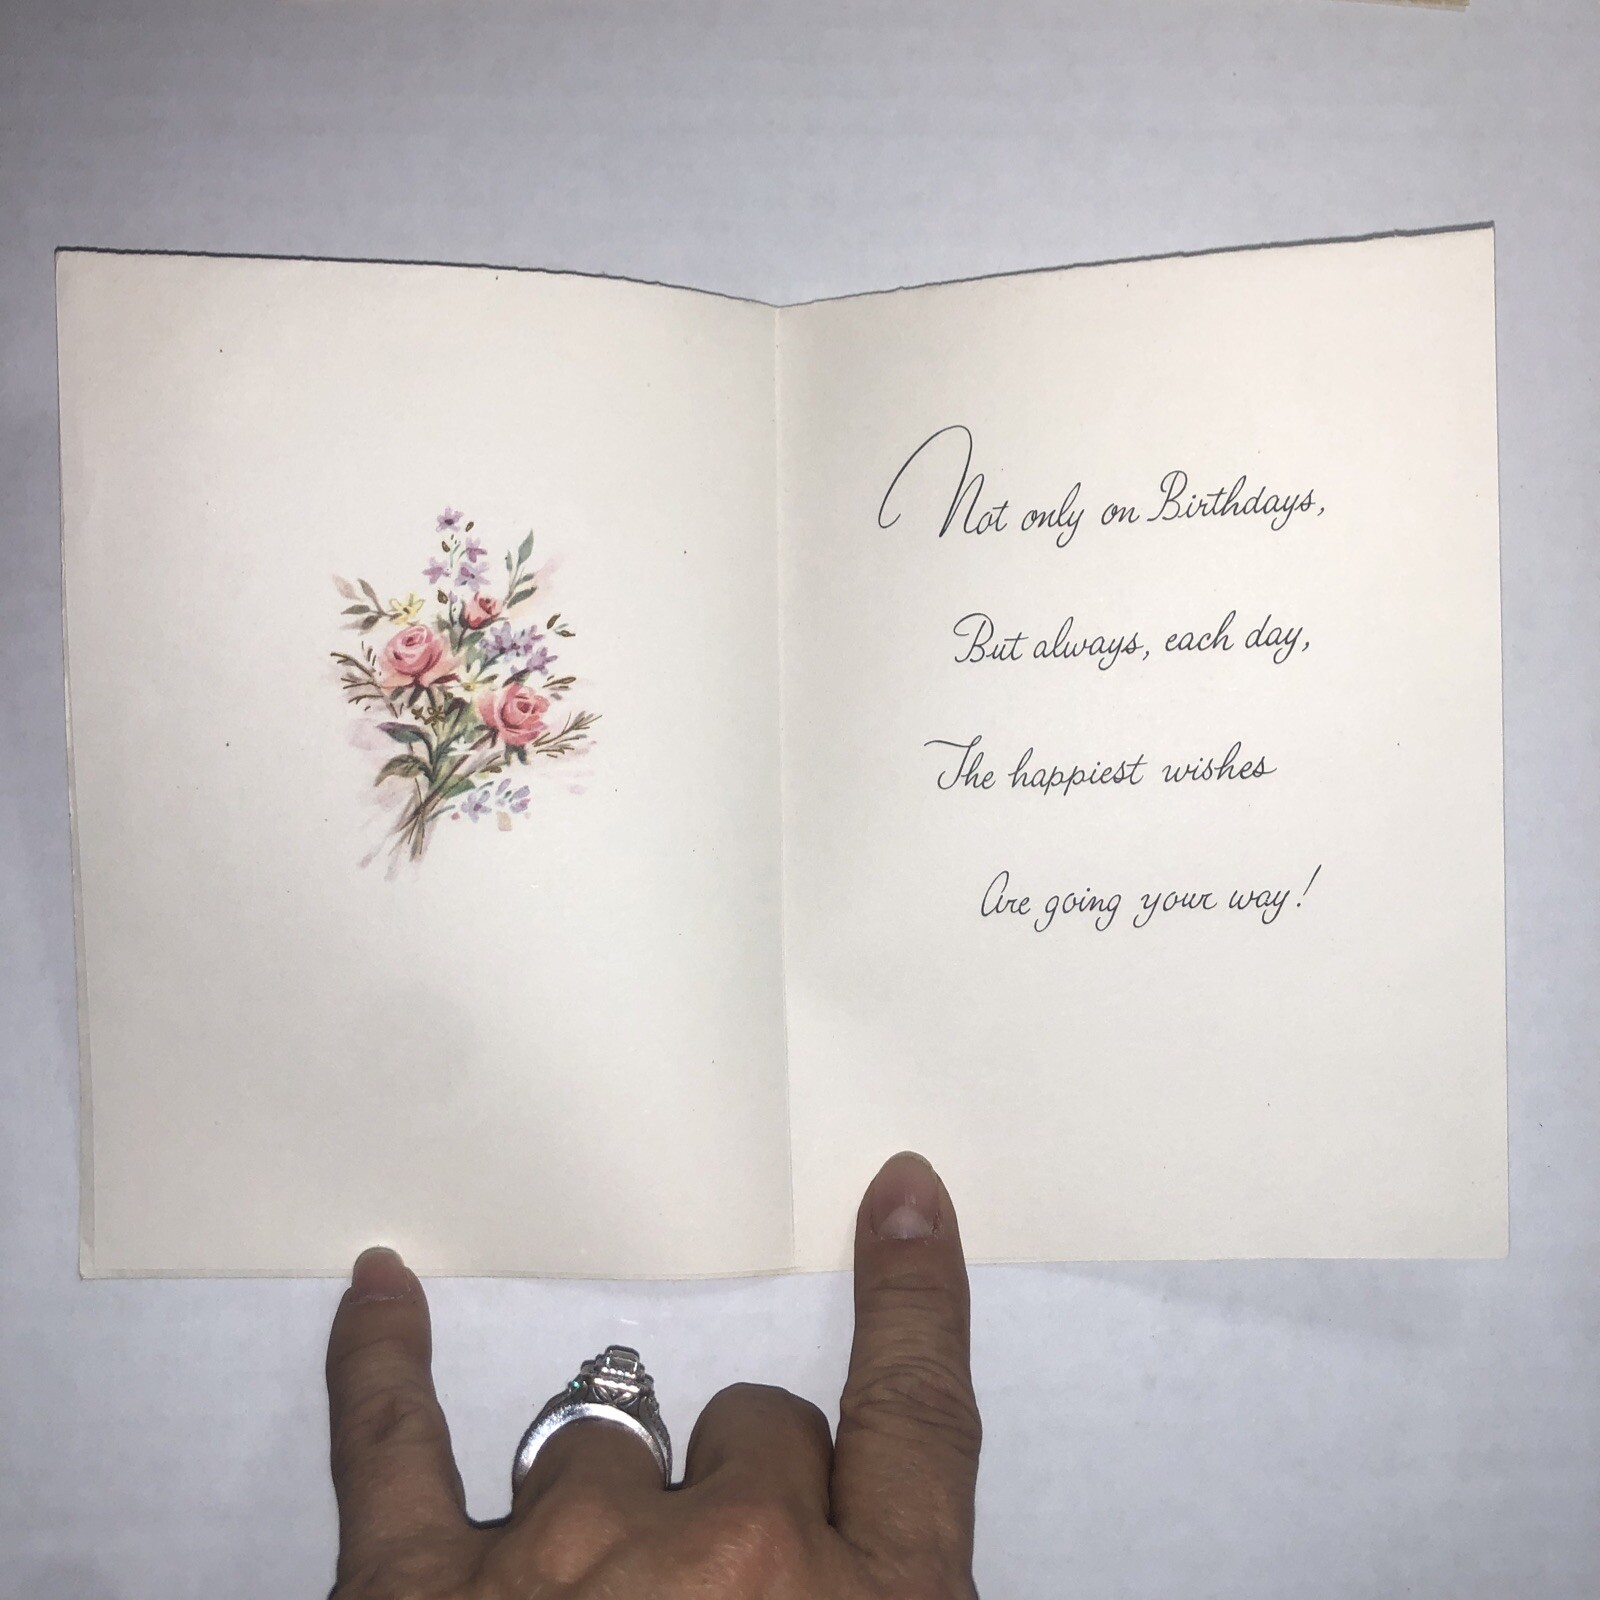 Not only on Birthdays,
But always, each day,
The happiest wishes
Are going your way!